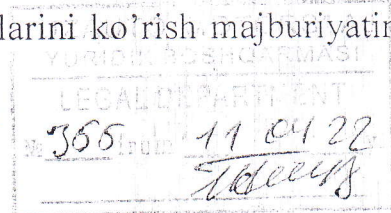 larini ko’rish majburiyatin
YURIDIK BOSHQARMASI
LEGAL DEPARTMENT
№ 355 from 11 04 22